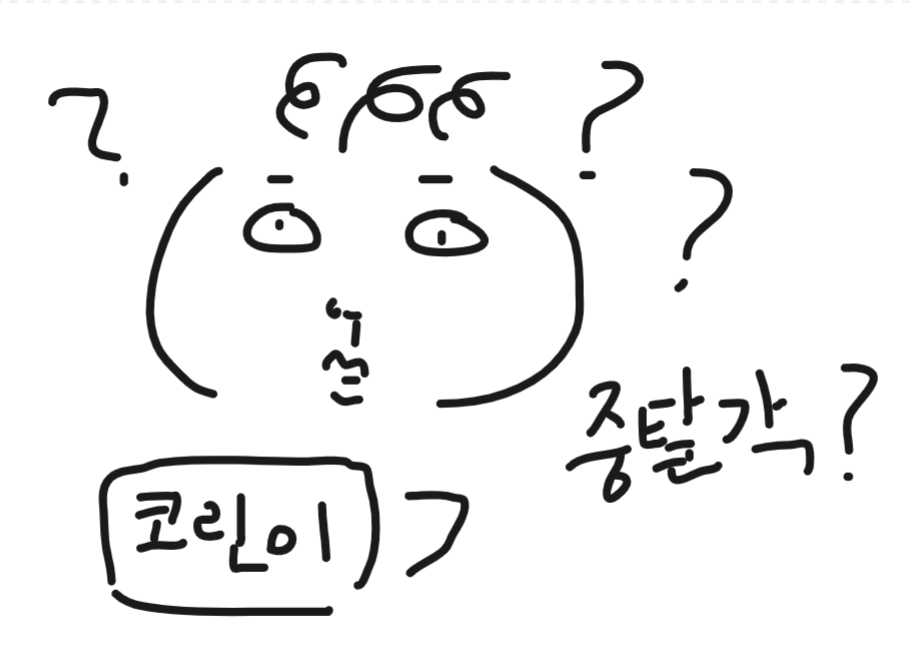 ? ? ?
중탈각?
코린이